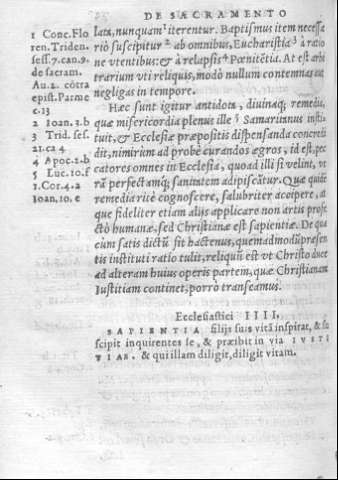 DE SACRAMENTO
1 Conc. Flo
ren. Triden.
sess. 7. can. 9.
de sacram.
Au. 2. cōtra
epist. Parme
c. 13
2 Ioan. 3. b
3 Trid. ses.
21. ca 4
4 Apoc. 2. b
5 Luc. 10. f
1. Cor. 4. a
Ioan. 10. e
lata, nunquam¹ iterentur. Baptismus item necessa
riò suscipitur² ab omnibus, Eucharistia³ à ratio
ne vtentibus: & à relapsis⁴ Pœnitẽtia. At est arbi
trarium vti reliquis, modò nullum contemnas aut
negligas in tempore.
Hæc sunt igitur antidota, diuinaq; remedia,
quæ misericordia plenus ille⁵ Samaritanus insti
tuit, & Ecclesiæ præpositis dispensanda concre
dit, nimirùm ad probè curandos ægros, id est, pec
catores omnes in Ecclesia, quoad illi si velint, ve
rã perfectamq; sanitatem adipiscātur. Quæ quidē
remedia ritè cognoscere, salubriter accipere, at
que fideliter etiam alijs applicare non artis profe
ctò humanæ, sed Christianæ est sapientiæ. De qua
cùm satis dictũ sit hactenus, quemadmodũ præsen
tis instituti ratio tulit, reliquũ est vt Christo duce
ad alteram huius operis partem, quæ Christianam
Iustitiam continet, porrò transeamus.
Ecclesiastici IIII.
SAPIENTIA filijs suis vitã inspirat, & su
scipit inquirentes se, & præibit in via IVSTI
TIAE. & qui illam diligit, diligit vitam.